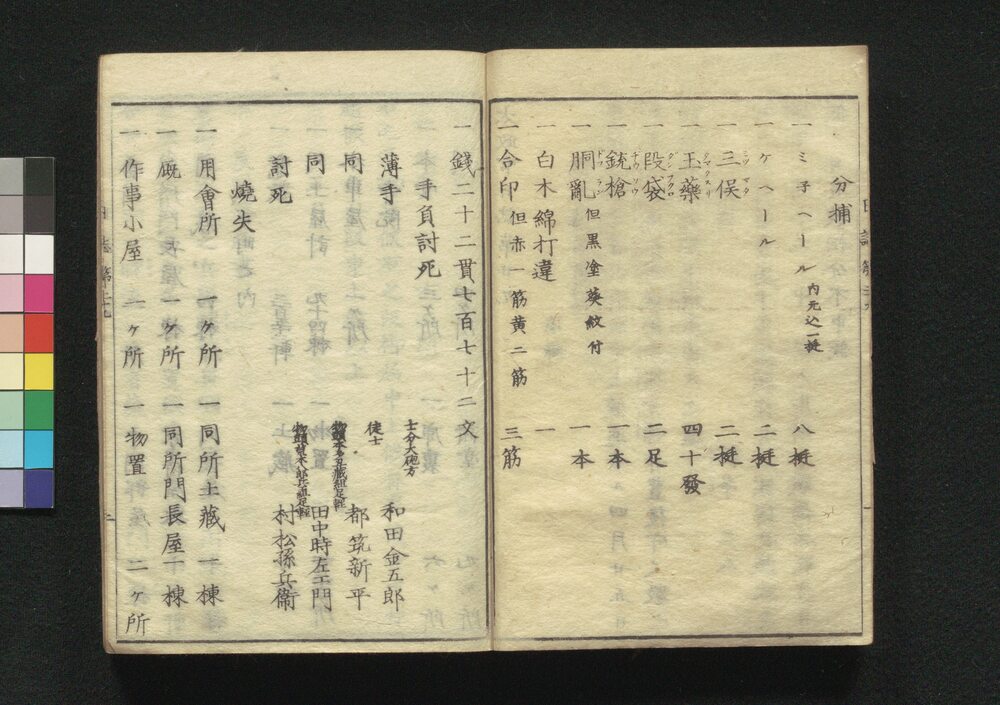 分捕
一 ミ子ヘール 内元込一挺 八挺
一 ケヘール 二挺
一 三俣 ミツマタ 二挺
一 玉藥 タマクスリ 四十發
一 段袋 ダンフクロ 二足
一 銃槍 一本
一 胴亂 ドウラン 但黒塗葵紋付 一本
一 白木綿打違 一
一 合印 但赤一筋黄二筋 三筋
一 錢二十二貫七百七十二文
手負討死
薄手 士分大砲方 和田金五郎
同 徒士 都筑新平
同 田中時左エ門
討死 村松孫兵衛
燒失
一 用會所 一ヶ所 一 同所土藏 一棟
一 厩 一ヶ所 一 同所門長屋 一棟
一 作事小屋 一ヶ所 一 物置 二ヶ所